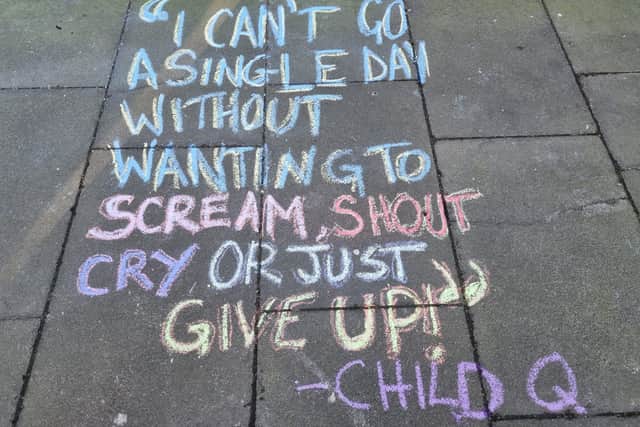 "I CAN'T GO
A SINGLE DAY
WITHOUT
WANTING TO
SCREAM, SHOUT
CRY OR JUST
GIVE UP!"
-CHILD Q